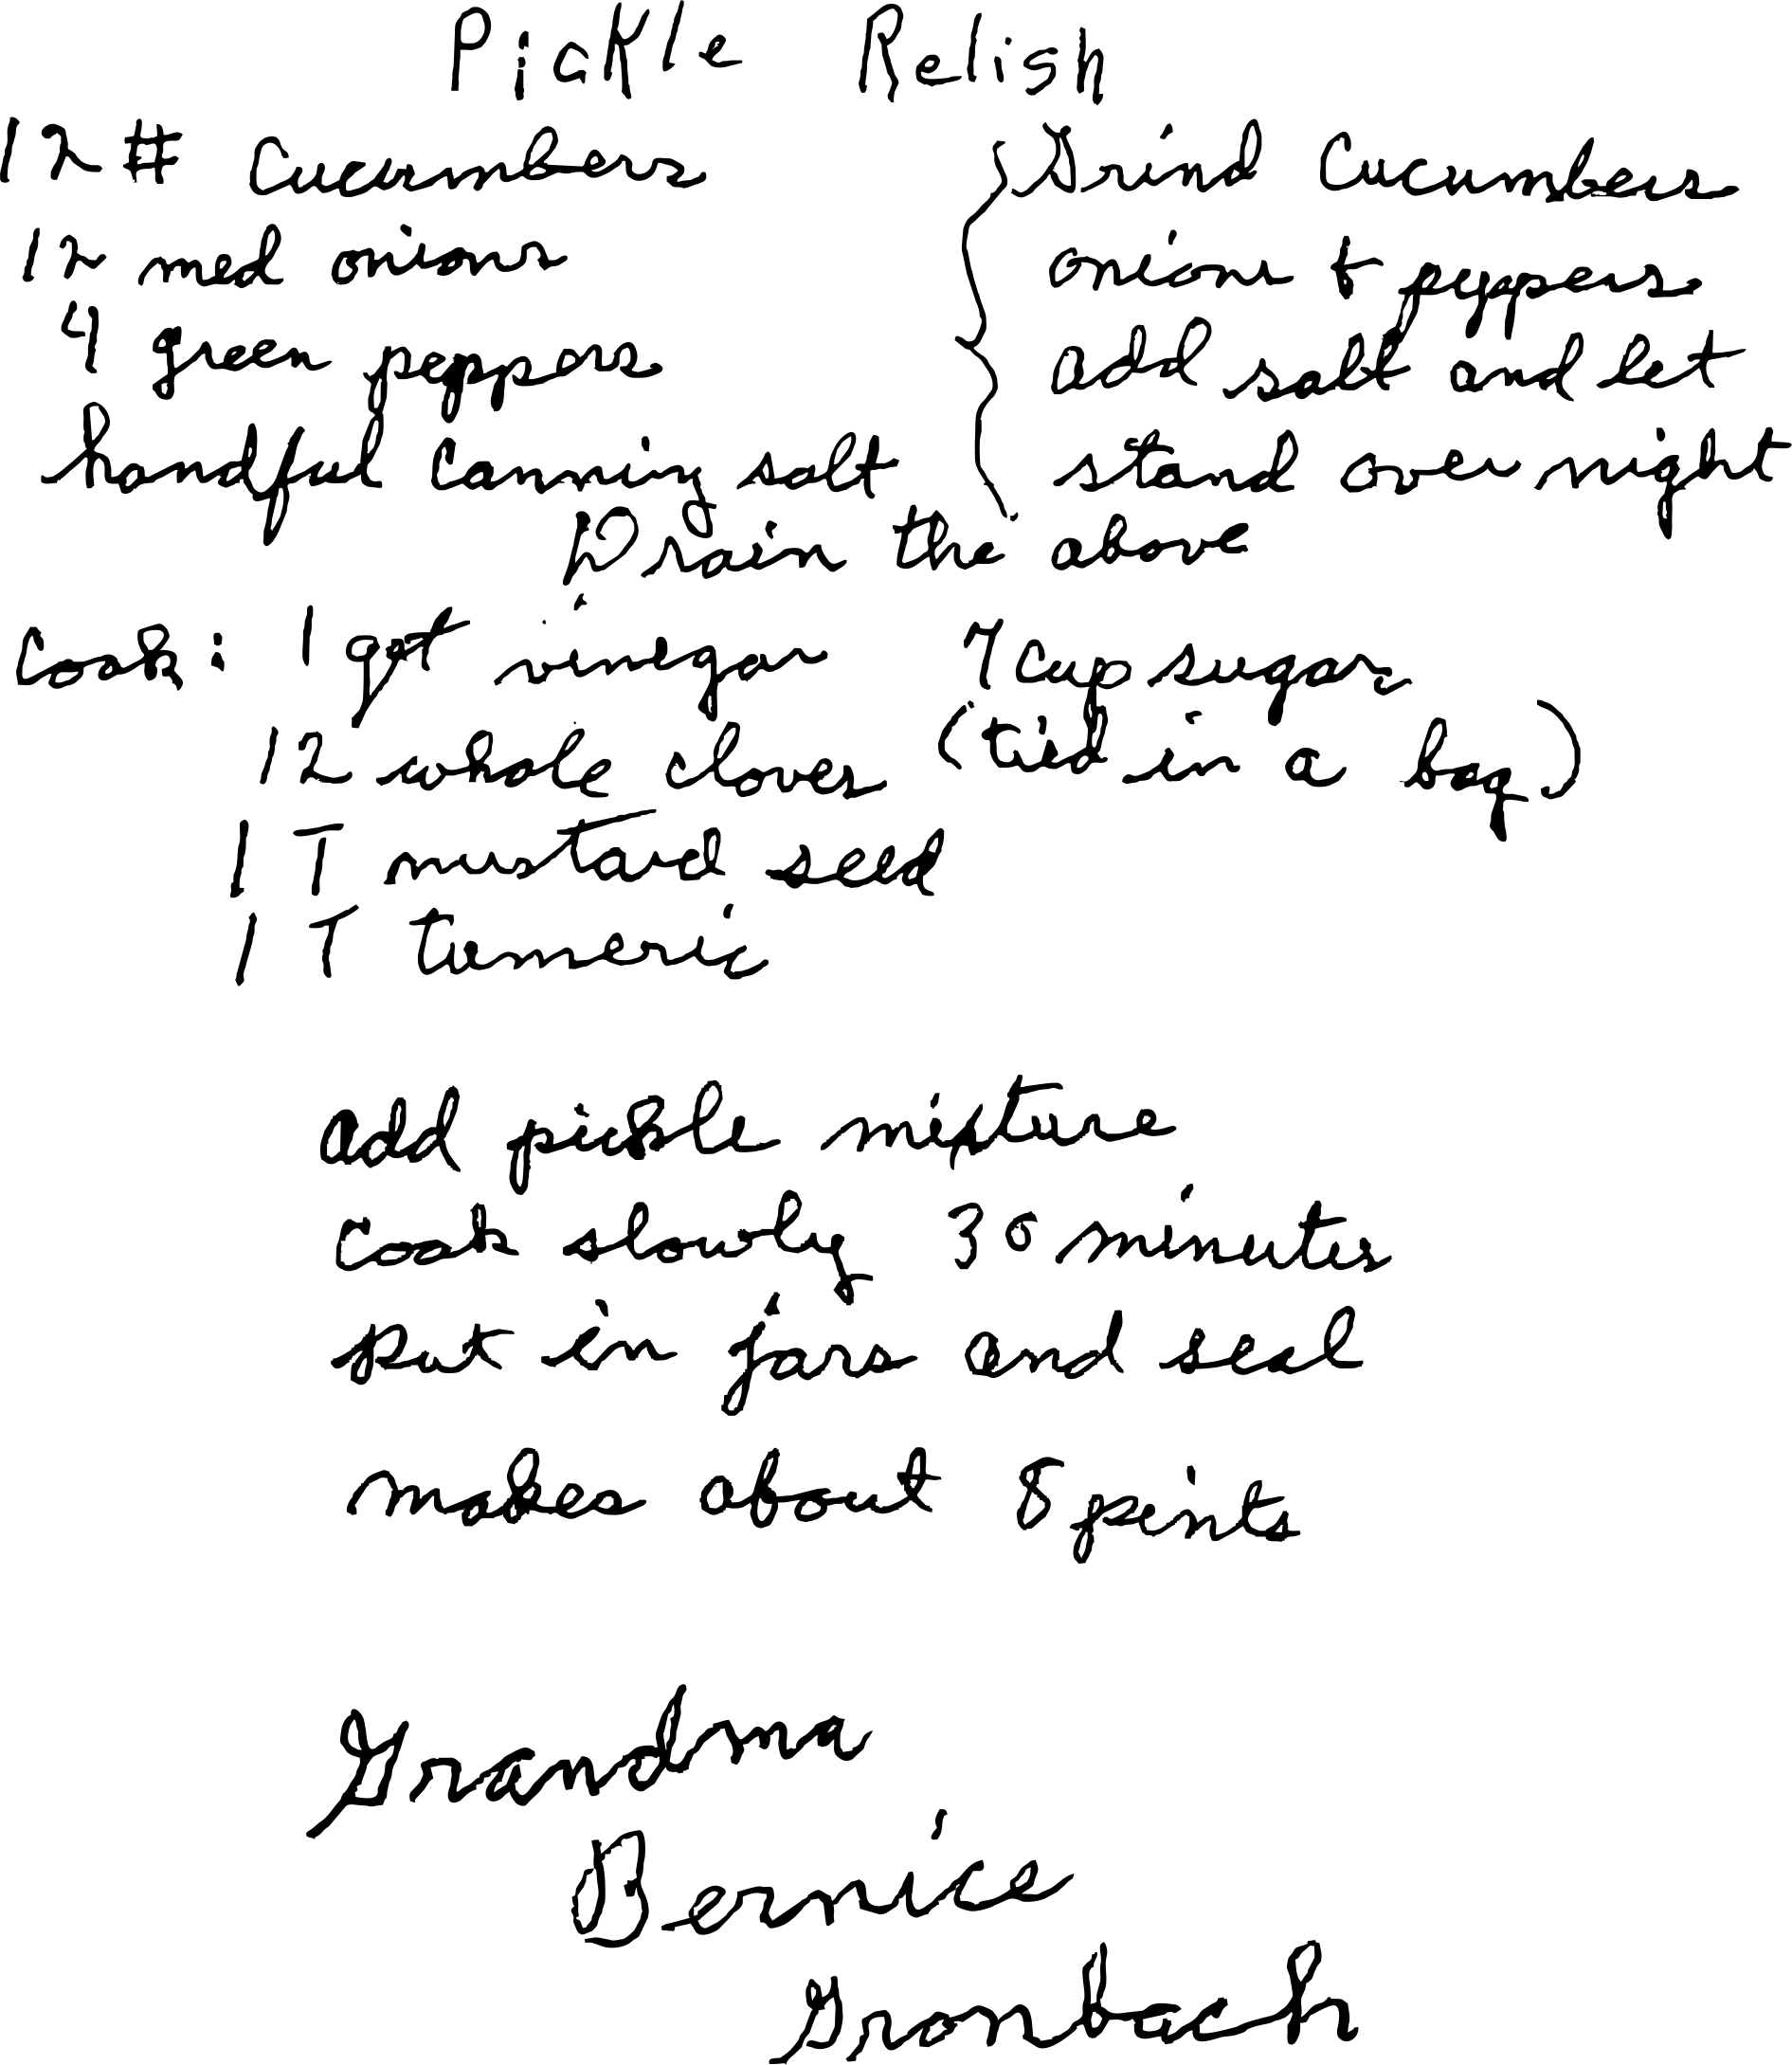 Pickle Relish
12 # Cucumbers
12 med onions
4 green peppers
handful canning salt
Grind Cucumbers
onions + peppers
add salt and let
stand over night
Drain the above
Cook: 1 qt vinegar 4 cup sugar
12 whole cloves (tied in a bag)
1 T mustard seed
1 T tumeric
add pickle mixture
cook slowly 30 minutes
put in jars and seal
makes about 8 pints
Grandma
Bernice